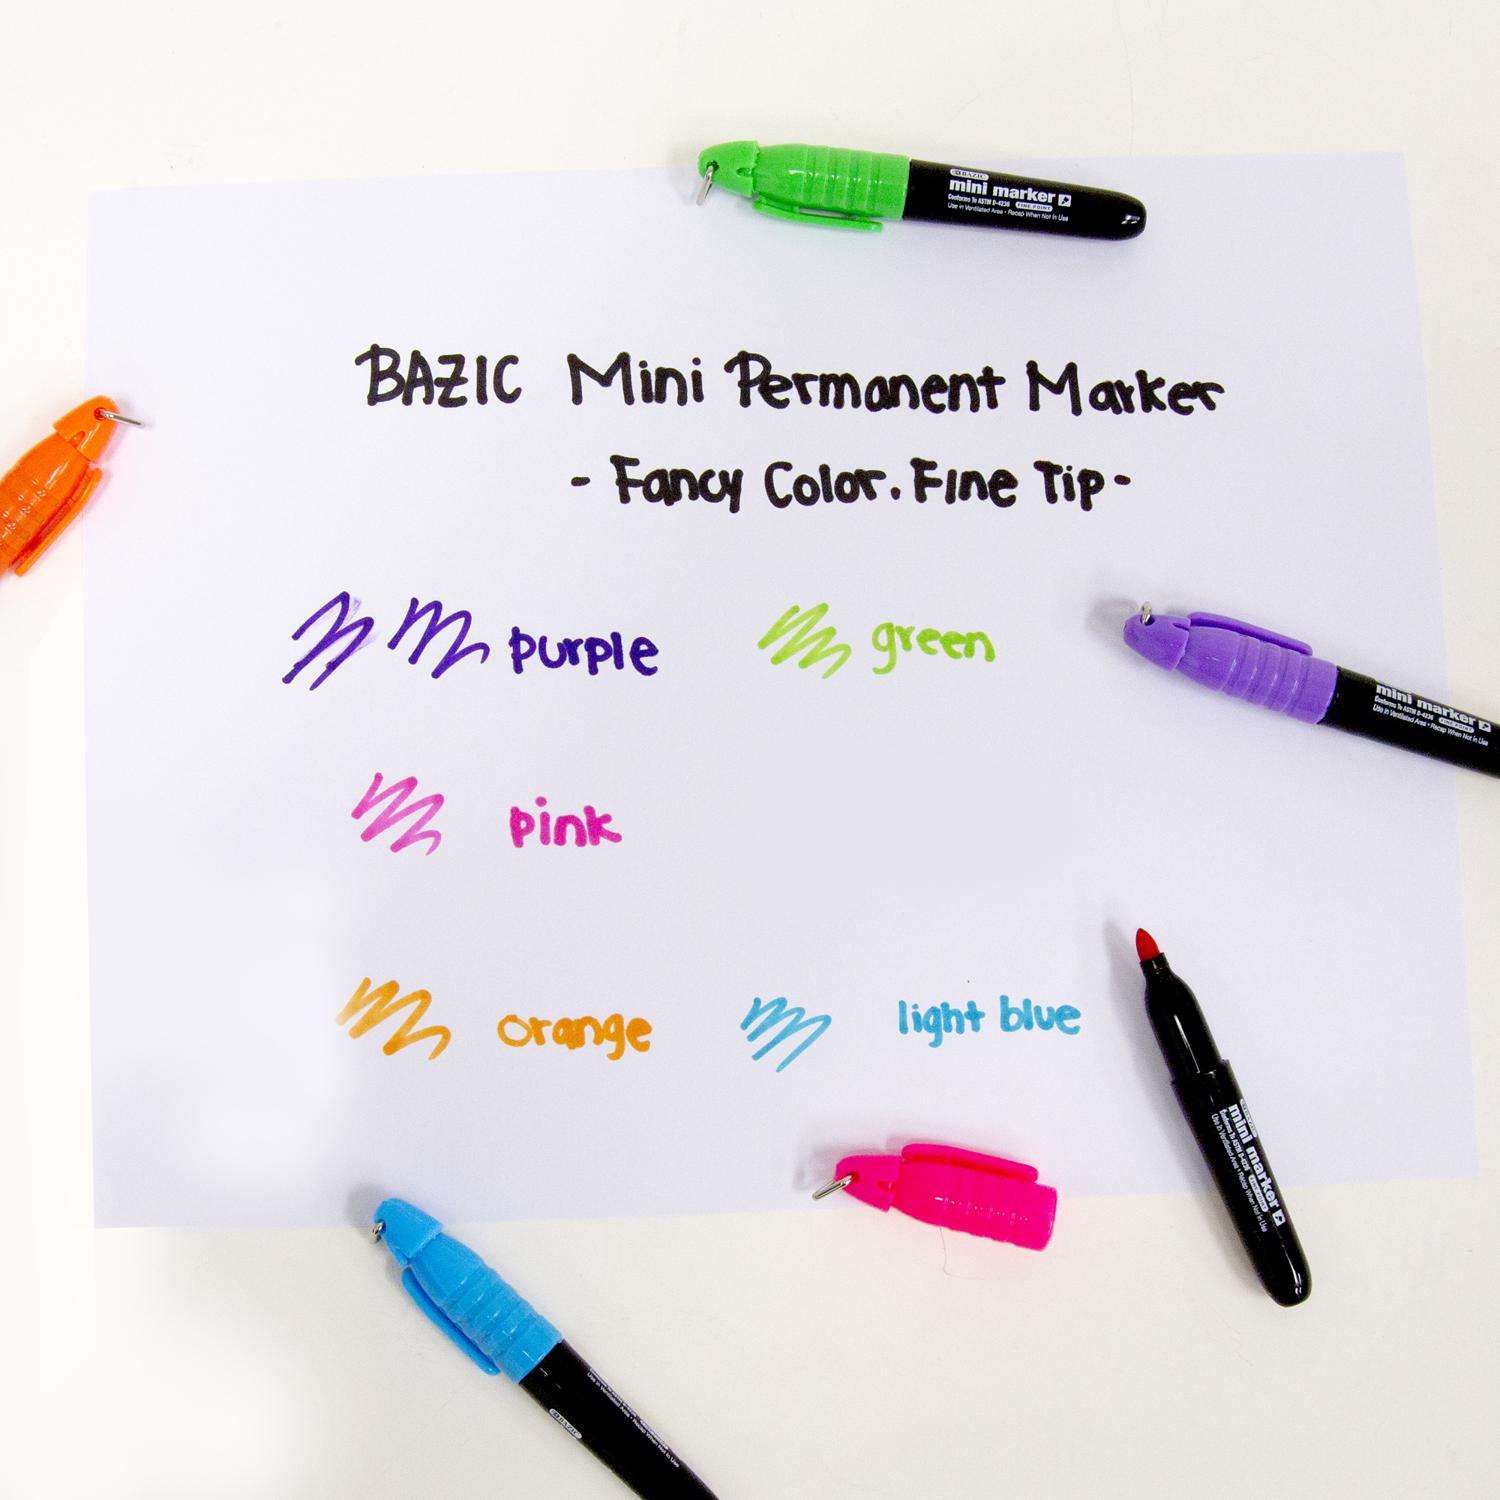 BAZIC
mini marker
Conforms To ASTM D-4236 FINE POINT
Use in Ventilated Area • Recap When Not In Use
BAZIC Mini Permanent Marker
- Fancy Color. Fine Tip -
purple green
mini marker
Conforms To ASTM D-4236 FINE POINT
Use in Ventilated Area • Recap When Not In Use
pink
orange light blue
mini marker
Conforms To ASTM D-4236 FINE POINT
Use in Ventilated Area • Recap When Not In Use
Use in Ventilated Area • Recap When Not In Use
BAZIC